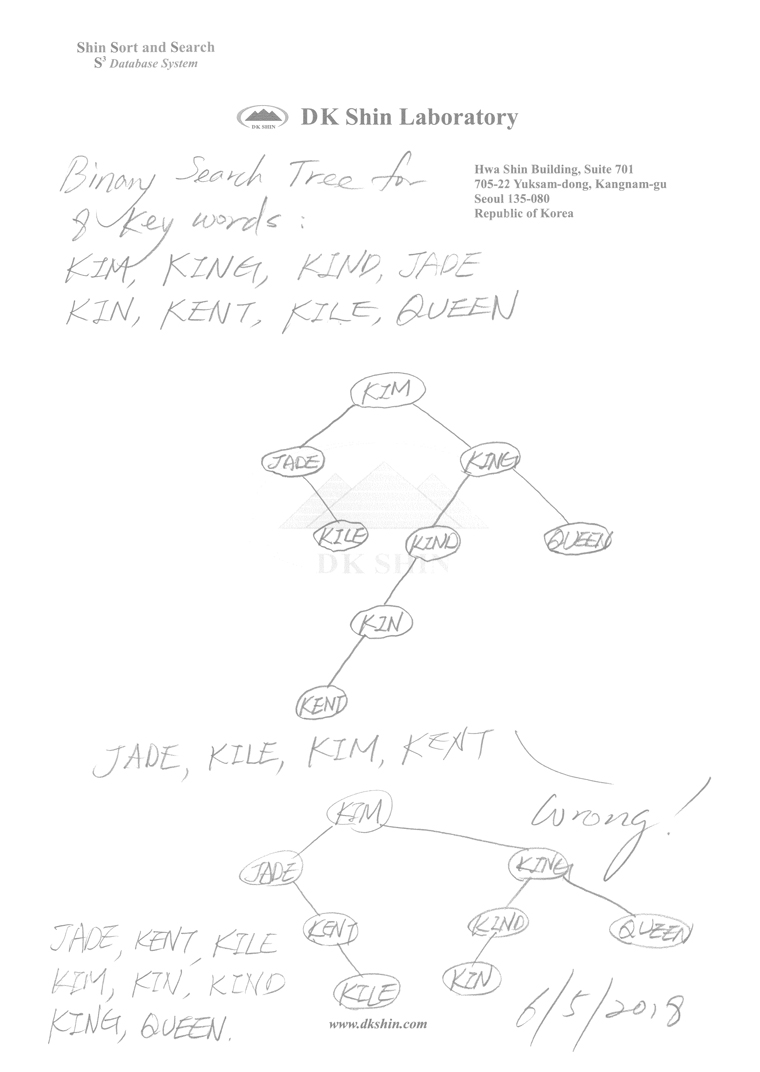 Shin Sort and Search
S³ Database System
DK SHIN
DK Shin Laboratory
Hwa Shin Building, Suite 701
705-22 Yuksam-dong, Kangnam-gu
Seoul 135-080
Republic of Korea
Binary Search Tree for
8 Key words :
KIM, KING, KIND, JADE
KIN, KENT, KILE, QUEEN
KIM
JADE KING
KILE KIND QUEEN
DK SHIN
KIN
KENT
JADE, KILE, KIM, KENT
Wrong!
KIM
JADE KING
KENT KIND QUEEN
KILE KIN
JADE, KENT, KILE
KIM, KIN, KIND
KING, QUEEN.
6/5/2018
www.dkshin.com